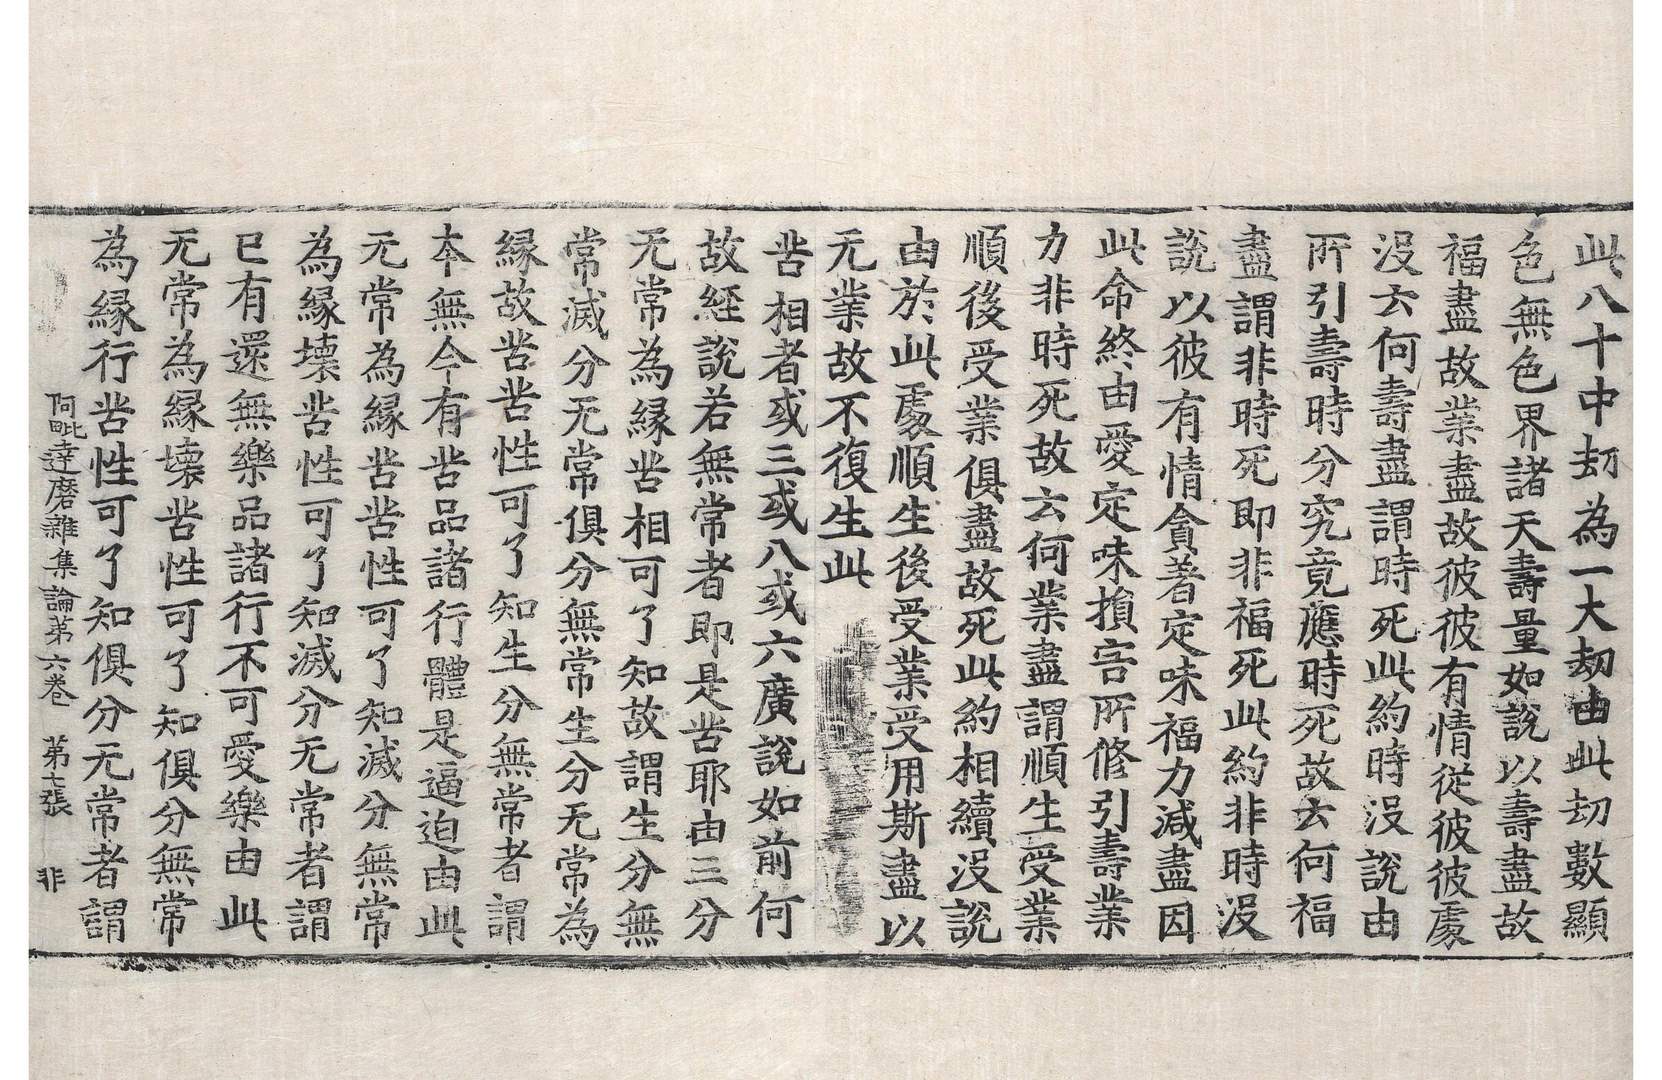 此八十中刧為一大刧由此刧數顯
色無色界諸天壽量如說以壽盡故
福盡故業盡故彼彼有情從彼彼處
沒云何壽盡謂時死此約時沒說由
所引壽時分究竟應時死故云何福
盡謂非時死即非福死此約非時沒
說以彼有情貪著定味福力減盡因
此命終由愛定味損害所修引壽業
力非時死故云何業盡謂順生受業
順後受業俱盡故死此約相續沒說
由於此處順生後受業受用斯盡以
无業故不復生此
苦相者或三或八或六廣說如前何
故經說若無常者即是苦耶由三分
无常為緣苦相可了知故謂生分無
常滅分无常俱分無常生分无常為
緣故苦苦性可了知生分無常者謂
本無今有苦品諸行體是逼迫由此
无常為緣苦苦性可了知滅分無常
為緣壞苦性可了知滅分无常者謂
已有還無樂品諸行不可愛樂由此
无常為緣壞苦性可了知俱分無常
為緣行苦性可了知俱分无常者謂
阿毗達磨雜集論第六卷 第七張 非